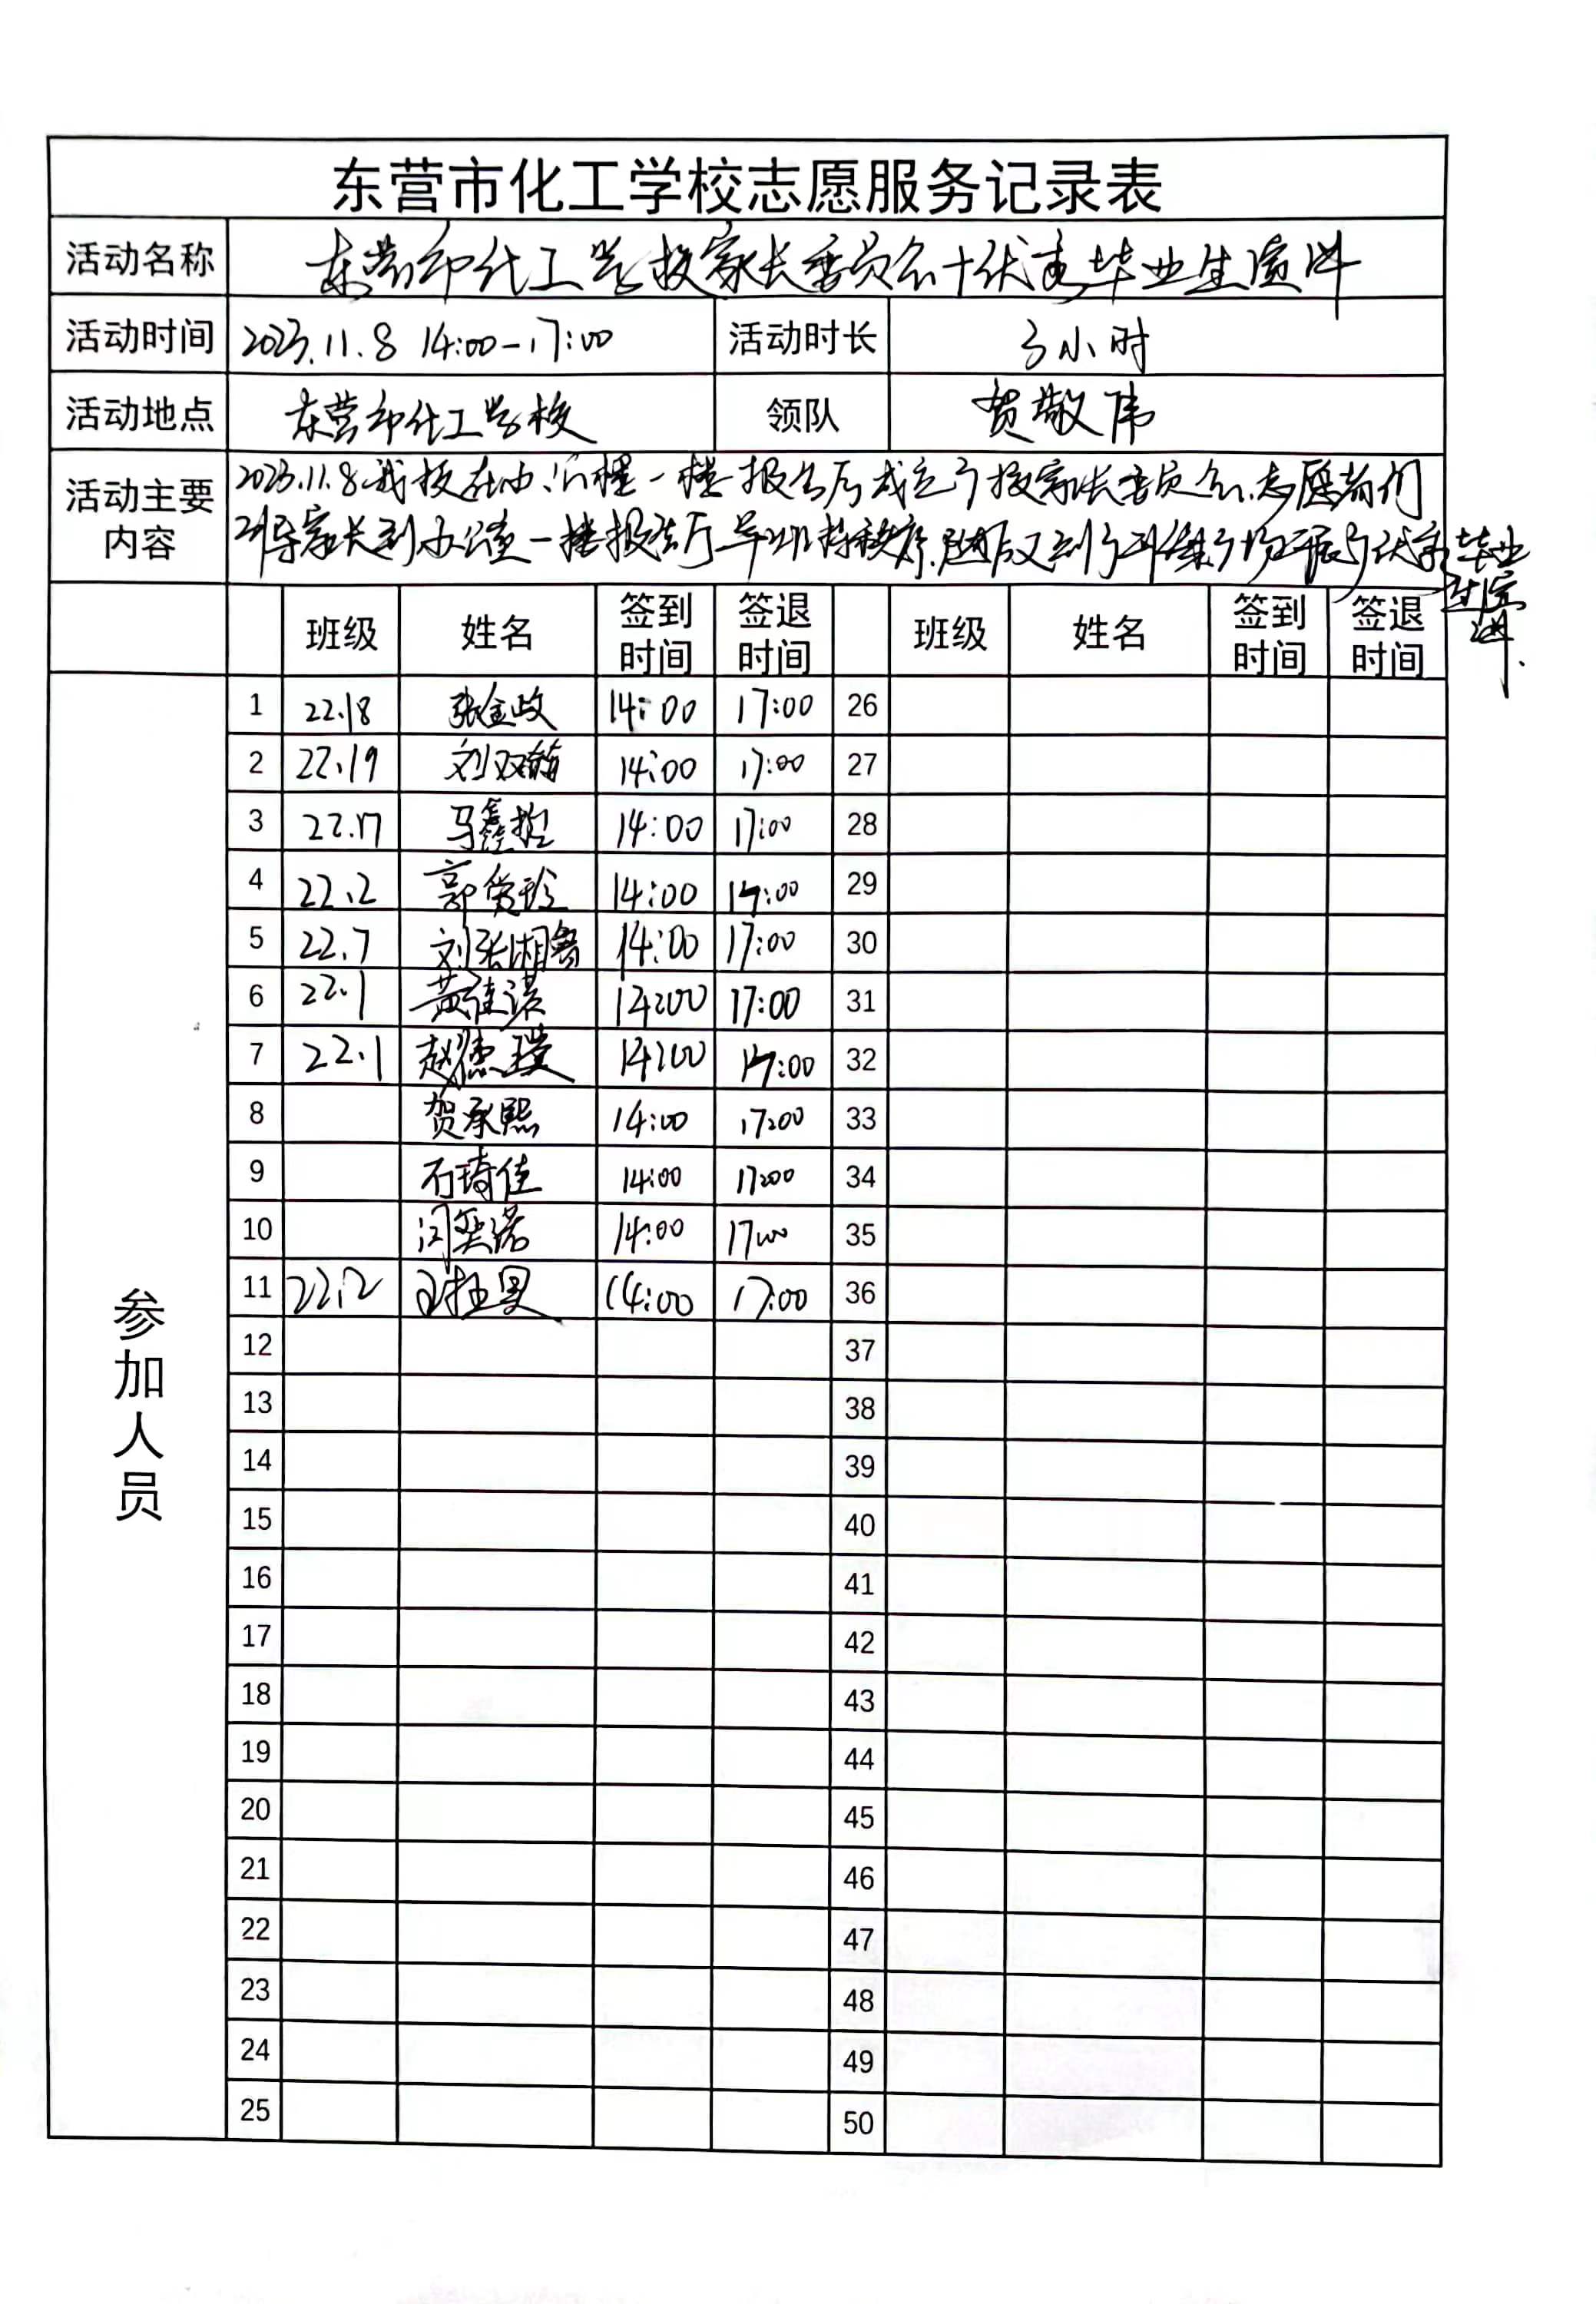 东营市化工学校志愿服务记录表
活动名称 东营市化工学校家长委员会+优秀毕业生宣讲
活动时间 2023.11.8 14:00-17:00 活动时长 3小时
活动地点 东营市化工学校 领队 贺敬伟
活动主要内容 2023.11.8我校在办公楼一楼报告厅成立了校家长委员会.志愿者们
引导家长到办公楼一楼报告厅并维持秩序.随后又到开展了优秀毕业
生宣讲.
班级 姓名 签到时间 签退时间 班级 姓名 签到时间 签退时间
参加人员
1 22.18 张金政 14:00 17:00 26
2 22.19 刘双 14:00 17:00 27
3 22.17 马鑫 14:00 17:00 28
4 22.2 郭 14:00 17:00 29
5 22.7 刘张湘鲁 14:00 17:00 30
6 22.1 黄佳淇 14:00 17:00 31
7 22.1 赵 14:00 17:00 32
8 贺承熙 14:00 17:00 33
9 石琦佳 14:00 17:00 34
10 闫奕诺 14:00 17:00 35
11 22.2 14:00 17:00 36
12 37
13 38
14 39
15 40
16 41
17 42
18 43
19 44
20 45
21 46
22 47
23 48
24 49
25 50